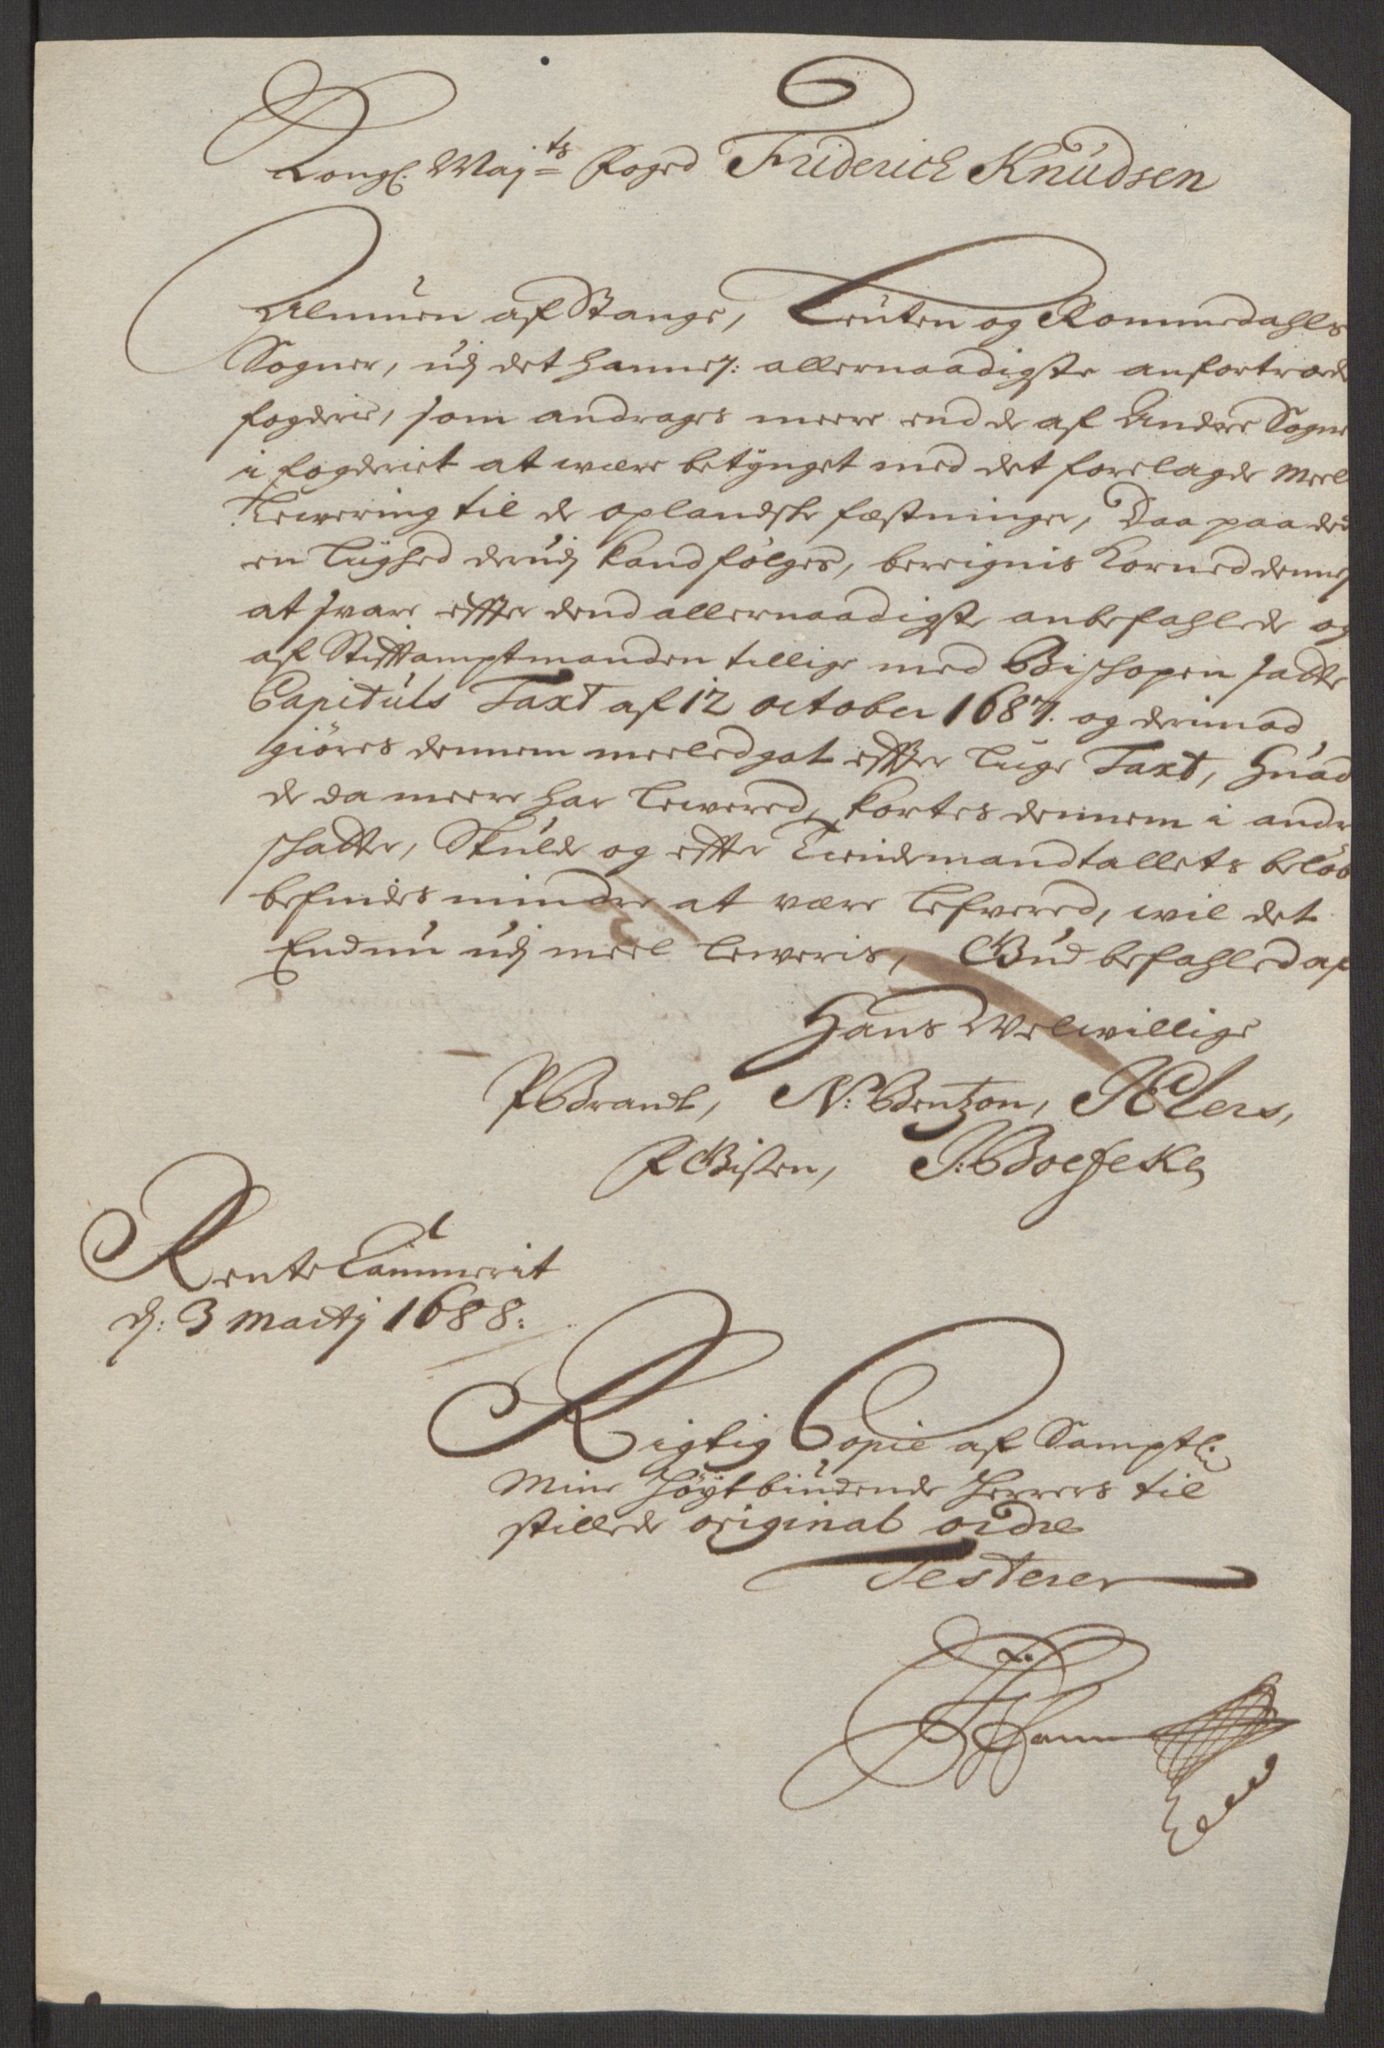 Kongl. Maj:ts foged Friderich Knudsen
Almuen af Stange, Leuten og Rommedahls
Sogner, udj det hannem: allernaadigste anfortroede
fogderie, som andrages meere end de af Andere Sogne
i fogderiet at være betÿnget med det forelagde Meel
Lewering til de oplandske fæstninger, Daa paa det
en liighed derudj kand følges, bereignis Korned dennem
at svare effter dend allernaadigste anbefahlede og
af Stifftamptmanden tillige med Bischopen satte
Capituls Taxt af 12 october 1687. og derimod
giøres dennem meeled got effter liige Taxt, Huad
de da meere har lewered, kortes dennem i andre
schatter, Skulde og effter Tiendemandtallets beløb
befindes mindre at være lefvered, wil det
Endnu udj meel leweris, Gud befahled af
Hans Welwillige
P Brandt, N: Bentzon, H Elers,
P Gisen, J: Boefeke,
Rente Cammerit
d: 3 Martij 1688:
Rigtig Copie af Samptl:
Mine Høÿtbiudende Herrers til
stillede original ordre
Testerer